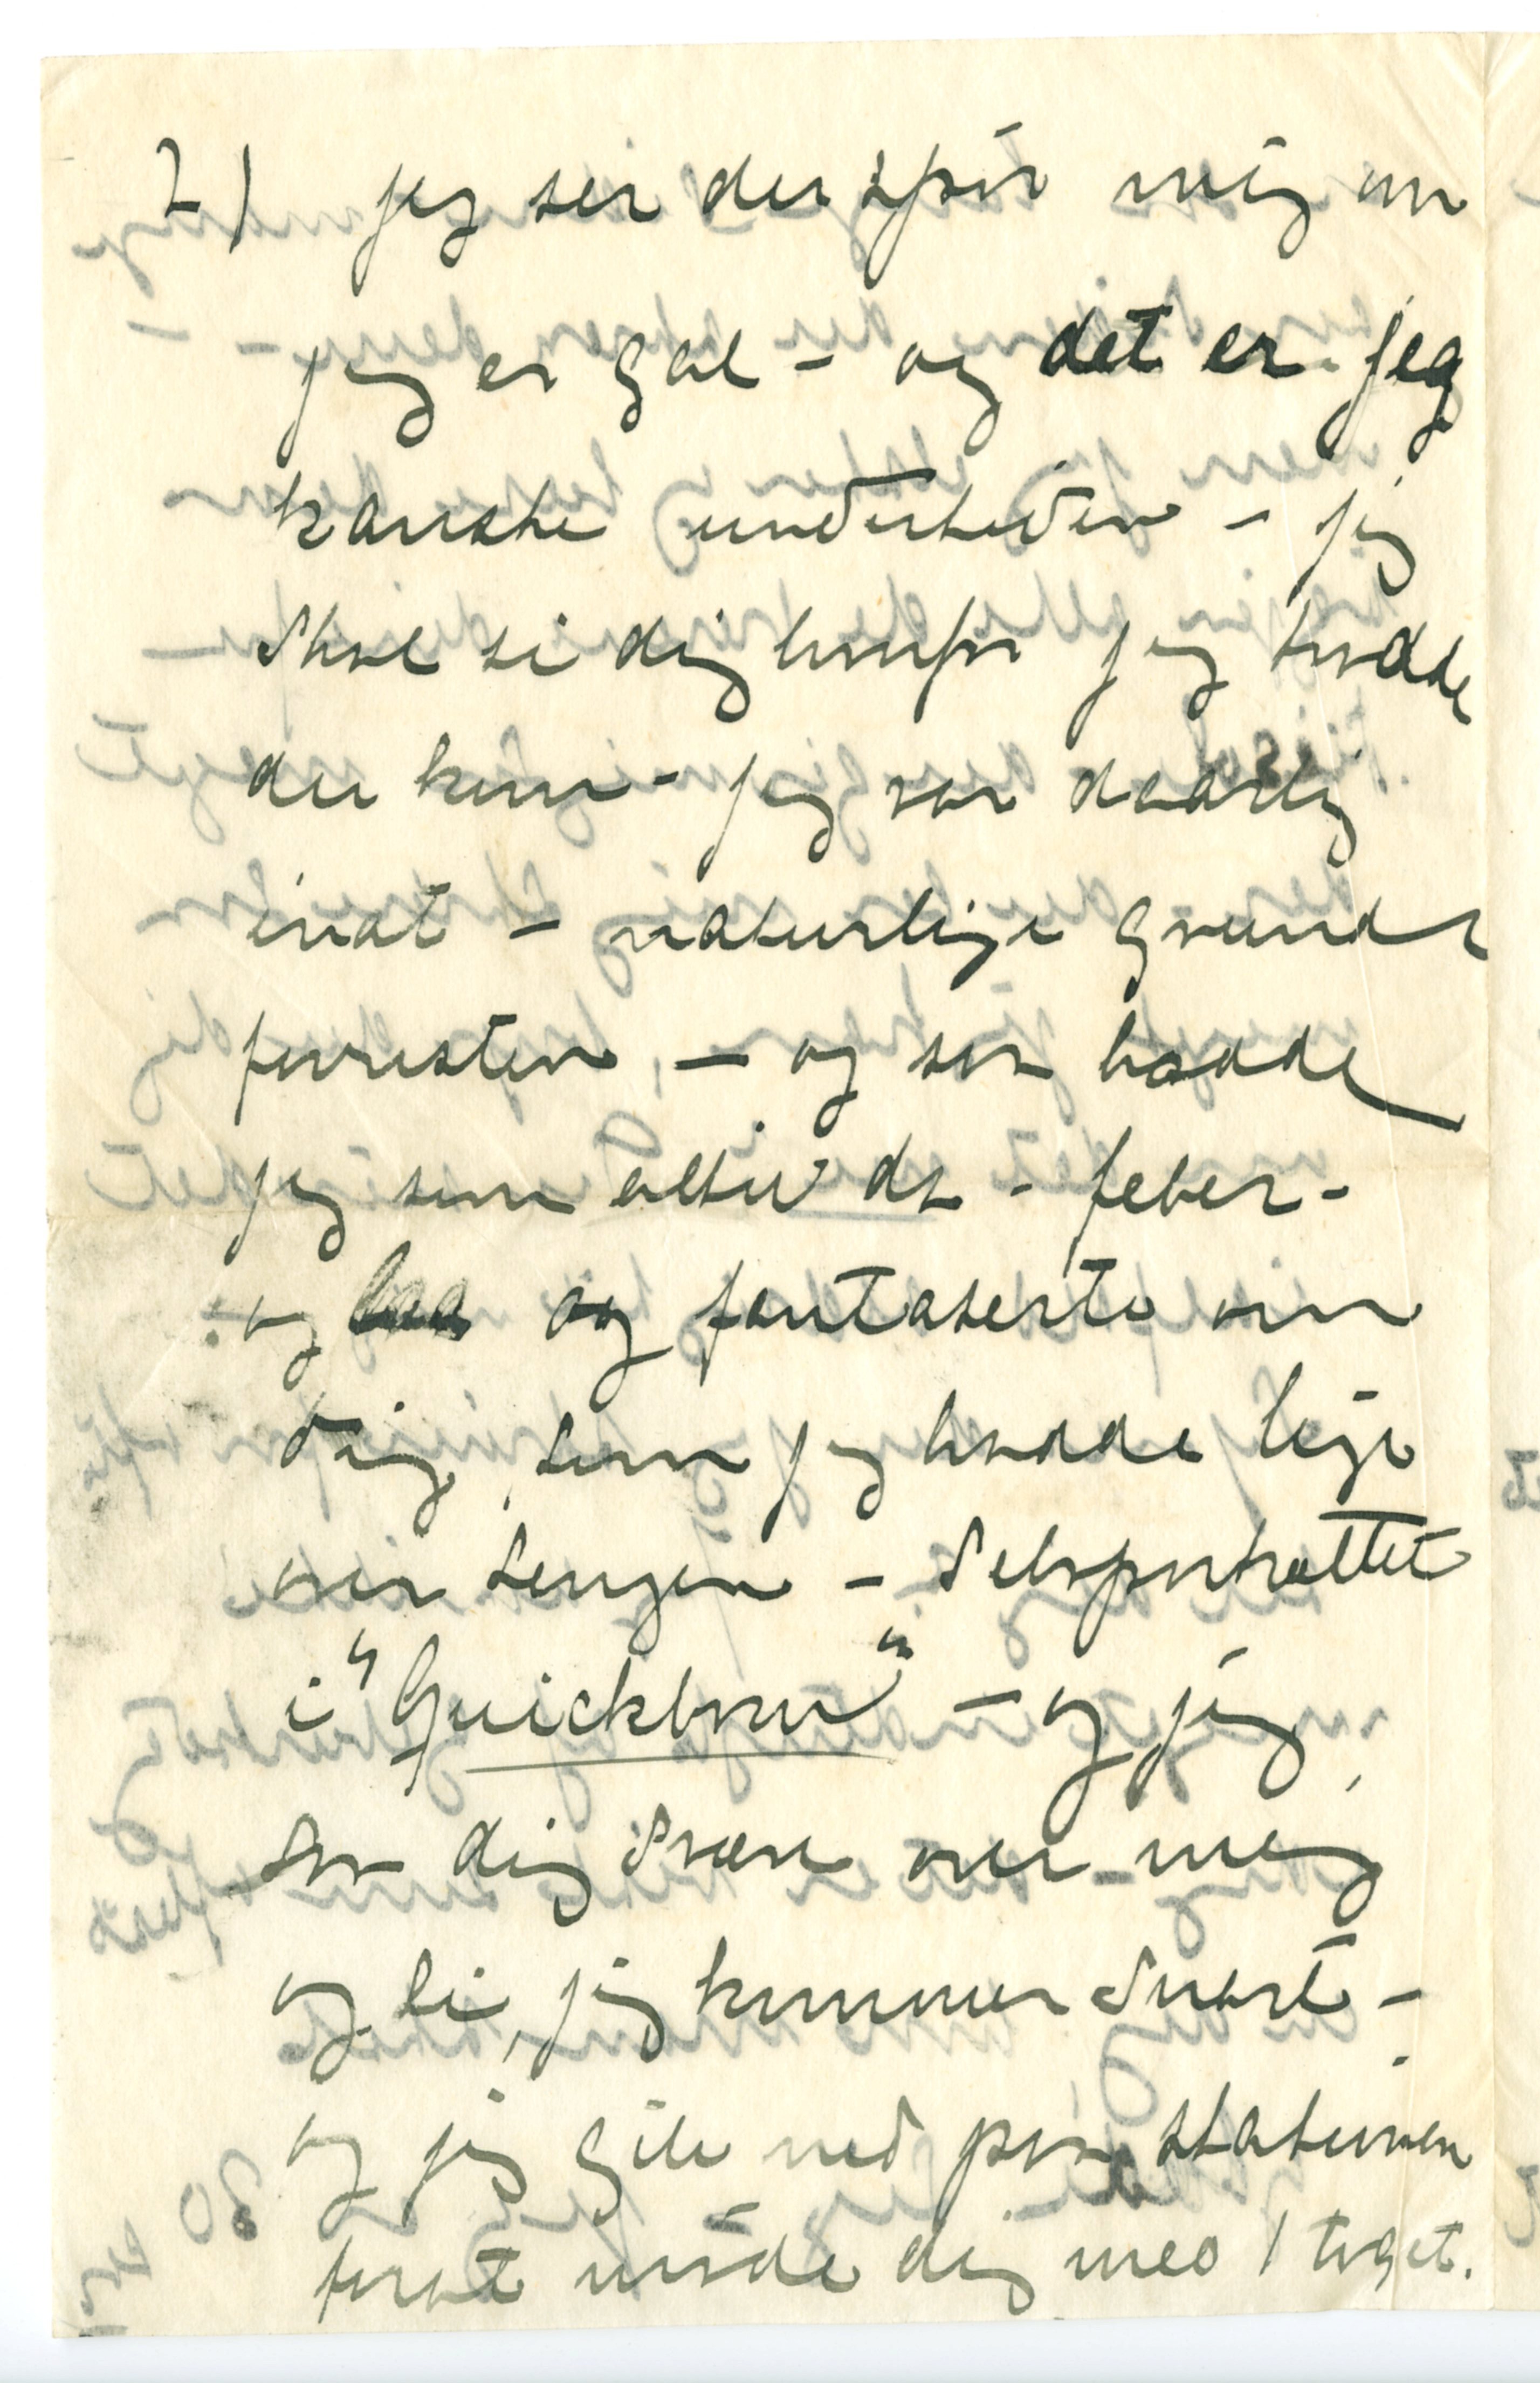 2) jeg ser du spör mig om
jeg er gal – og det er jeg
kanske undertiden – jeg
skal si dig hvorfor jeg trodde
du kom – jeg var daarlig
inat – naturlige grunde
forresten, – og saa hadde
jeg som altid da – feber –
og laa og fantaserte om
dig, som jeg hadde lige
over sengen – Selvportrættet
i "Quickborn" – og jeg
saa dig svæve over mig
og si, jeg kommer snart –
og jeg gik ned paa stationen
forat möde dig med 1 toget.